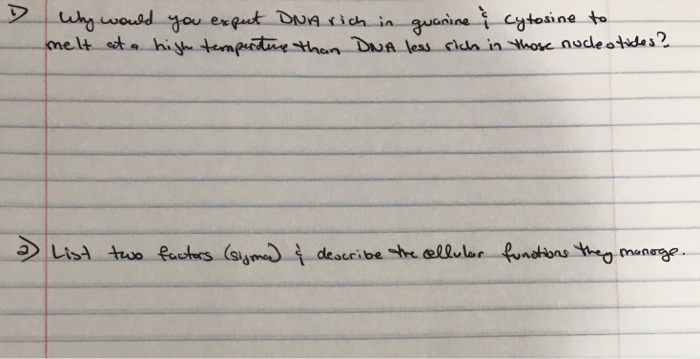 1) Why would you expect DNA rich in guanine & cytosine to
melt at a high temperature than DNA less rich in those nucleotides?
2) List two factors (sigma) & describe the cellular functions they manage.